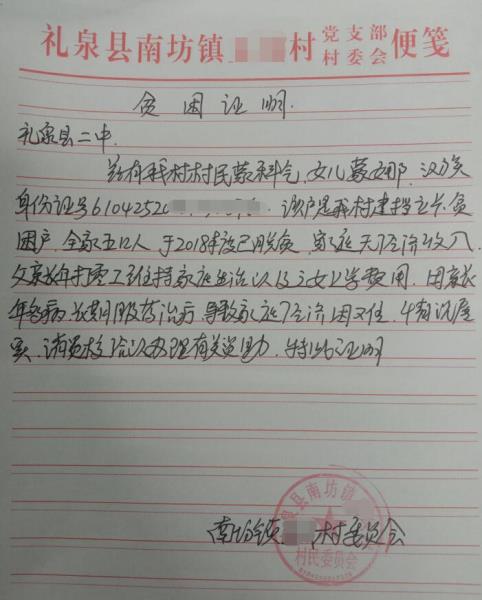 礼泉县南坊镇 村 党支部 村委会 便笺
贫困证明.
礼泉县二中.
兹有我村村民蒙科仓,女儿蒙安娜、汉族
身份证号6104252 . 该户是我村建档立卡贫
困户,全家五口人 于2018年度已脱贫,家庭无经济收入
父亲长年打零工维持家庭生活以及子女上学费用.因家
年多病,长期服药治疗,导致家庭经济困难,情况属
实,请贵校给以办理有关资助,特此证明
南坊镇 村委员会
泉县南坊镇
村民委员会